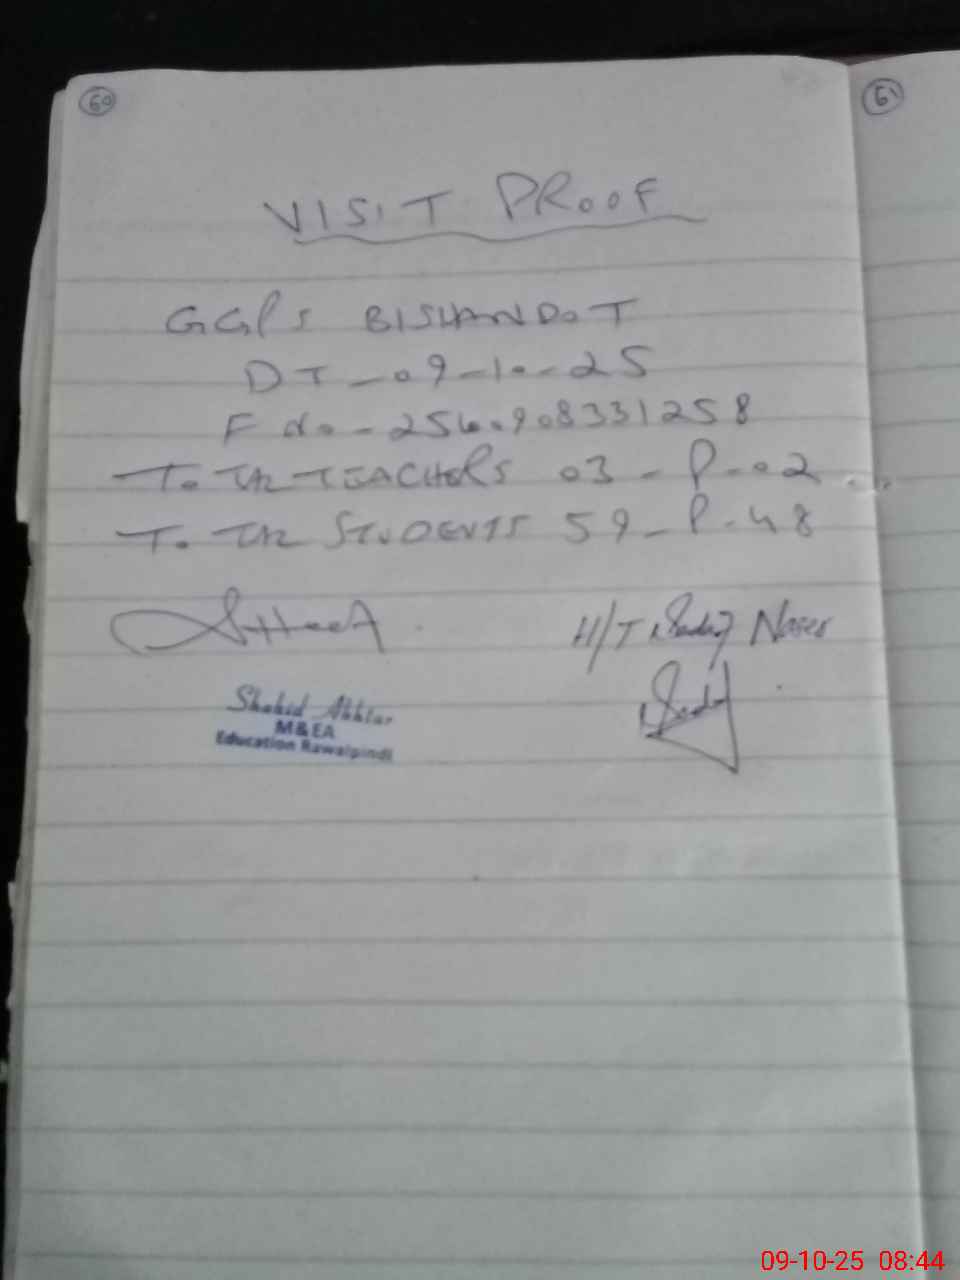 60
61
VISIT PROOF
GGPS BISHANDOT
DT_09-10-25
F No - 25100908331258
TOTAL TEACHERS 03 - P-02
TOTAL STUDENTS 59 - P-48
H/T Nases
Shahid Akhtar
M&EA
Education Rawalpindi
09-10-25 08:44